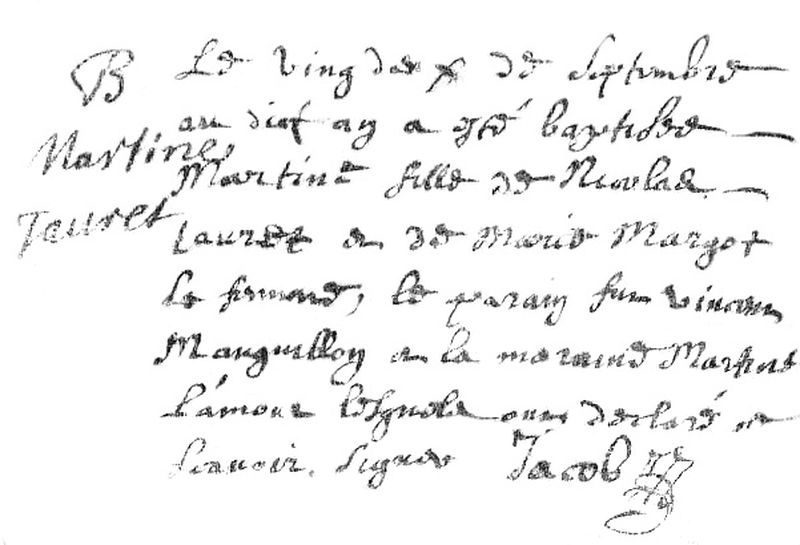 B
Martine
Jauret
Le vingdex de Septembre
au dict an a esté baptisée
Martine fille de Nicolas
Jauret et de Marie Margot
sa femme, le parain fut Vincent
Manguillon et la maraine Martine
Lamour lesquels ont declaré ne
scauoir signer Jacob